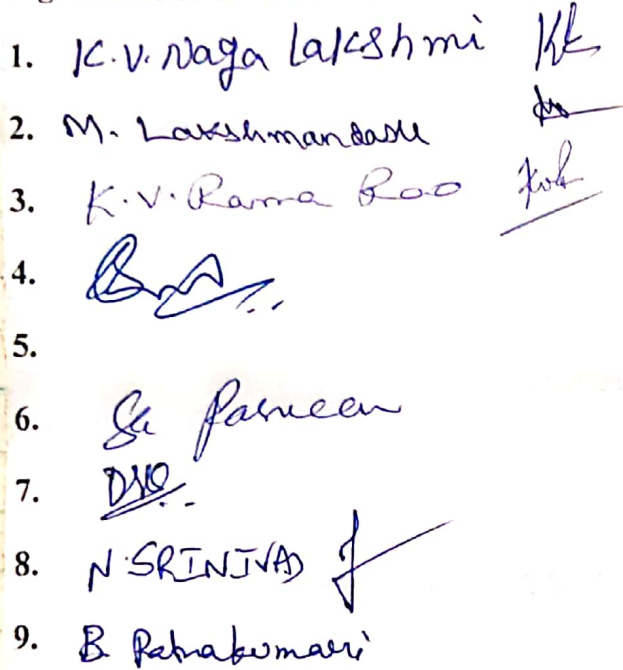 1. K.V. Naga Lakshmi
2. M. Lakshmandasu
3. K.V. Rama Rao
4.
5.
6. Sk Parveen
7.
8. N. SRINIVAS
9. B. Ratnakumari